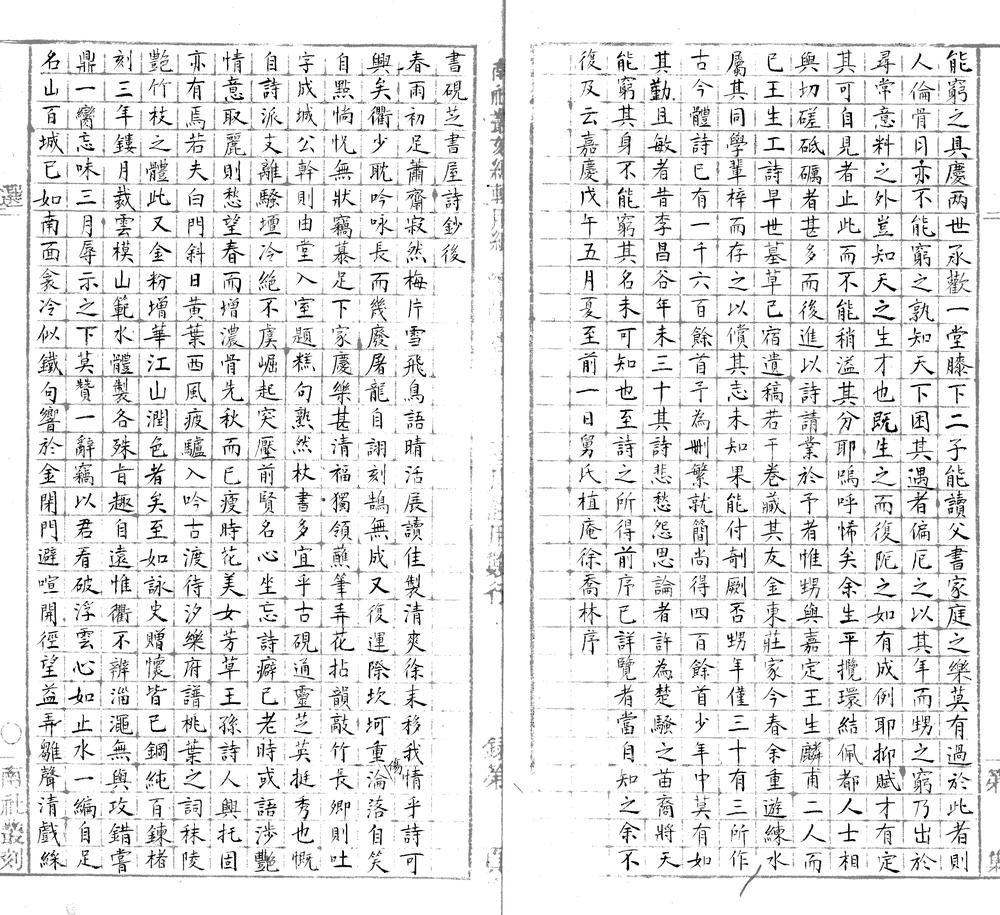 能窮之具慶两世承歡一堂膝下二子能讀父書家庭之樂莫有過於此者則
人倫骨目亦不能窮之孰知天下困其遇者偏厄之以其年而甥之窮乃出於
尋常意料之外豈知天之生才也既生之而復阨之如有成例耶抑賦才有定
其可自見者止此而不能稍溢其分耶嗚呼悕矣余生平攬環結佩都人士相
與切磋砥礪者甚多而後進以詩請業於予者惟甥與嘉定王生麟甫二人而
已王生工詩早世墓草已宿遺稿若干卷藏其友金東莊家今春余重遊練水
屬其同學輩梓而存之以償其志未知果能付剞劂否甥年僅三十有三所作
古今體詩已有一千六百餘首予為刪繁就簡尚得四百餘首少年中莫有如
其勤且敏者昔李昌谷年未三十其詩悲愁怨思論者許為楚騷之苗裔將天
能窮其身不能窮其名未可知也至詩之所得前序已詳覽者當自知之余不
復及云嘉慶戊午五月夏至前一日舅氏植庵徐喬林序
書硯芝書屋詩鈔後
春雨初足蕭齋寂然梅片雪飛鳥語晴活展讀佳製清爽徐来移我情乎詩可
興矣衢少耽吟咏長而幾廢屠龍自詡刻鵠無成又復運際坎坷重淪落自笑
傷
自點惝怳無狀竊慕足下家慶樂甚清福獨領蘸筆弄花拈韻敲竹長卿則吐
字成城公幹則由堂入室題糕句熟然杖書多宜乎古硯通靈芝英挺秀也慨
自詩派支離騷壇冷絕不虞崛起突壓前賢名心坐忘詩癖已老時或語涉艷
情意取麗則愁望春而增濃骨先秋而已瘦時花美女芳草王孫詩人興托固
亦有焉若夫白門斜日黃葉西風疲驢入吟古渡待汐樂府譜桃葉之詞秣陵
艷竹枝之體此又金粉增華江山潤色者矣至如詠史贈懷皆已鋼純百鍊楮
刻三年鏤月裁雲模山範水體製各殊旨趣自遠惟衢不辨淄澠無與攻錯嘗
鼎一臠忘味三月辱示之下莫贊一辭竊以君看破浮雲心如止水一編自足
名山百城已如南面衾冷似鐵句響於金閉門避喧開徑望益弄雛聲清戲綵
選
南社叢刻